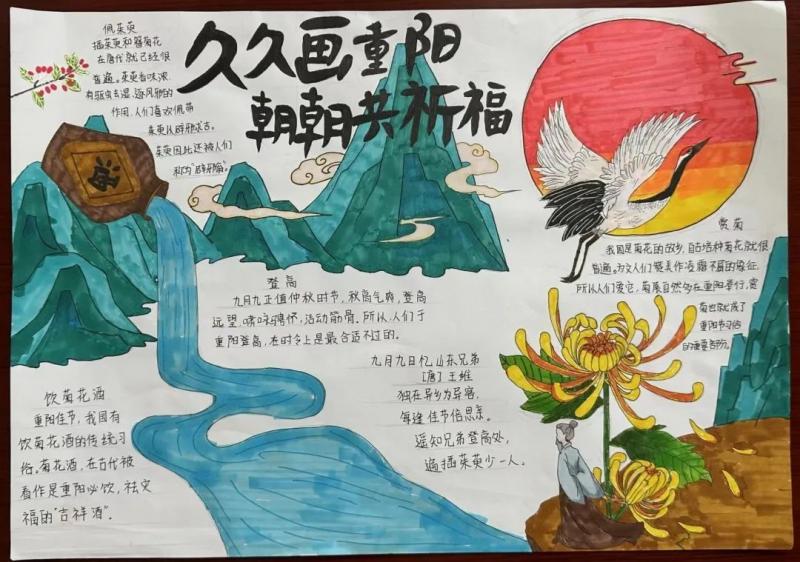 久久画重阳
朝朝共祈福
佩茱萸
插茱萸和簪菊花
在唐代就已经很
普遍。茱萸香味浓,
有驱虫去湿、逐风邪的
作用,人们喜欢佩带
茱萸以辟邪求吉。
茱萸因此还被人们
称为"辟邪翁"。
赏菊
我国是菊花的故乡,自古培种菊花就很
普遍。为文人们赞美作凌霜不屈的象征,
所以人们爱它,菊展自然多在重阳举行,赏
菊也就成了
重阳节习俗
的重要部分。
登高
九月九正值仲秋时节,秋高气爽,登高
远望,啸咏骋怀,活动筋骨。所以,人们于
重阳登高,在时令上是最合适不过的。
九月九日忆山东兄弟
[唐]王维
独在异乡为异客,
每逢佳节倍思亲。
遥知兄弟登高处,
遍插茱萸少一人。
饮菊花酒
重阳佳节,我国有
饮菊花酒的传统习
俗。菊花酒,在古代被
看作是重阳必饮,祛灾
祈福的"吉祥酒".